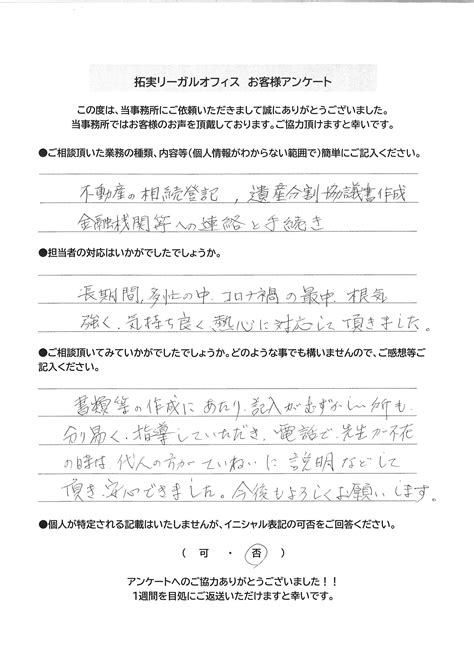 拓実リーガルオフィス お客様アンケート
この度は、当事務所にご依頼いただきまして誠にありがとうございました。
当事務所ではお客様のお声を頂戴しております。ご協力頂けますと幸いです。
●ご相談頂いた業務の種類、内容等(個人情報がわからない範囲で)簡単にご記入ください。
不動産の相続登記 , 遺産分割協議書作成
金融機関等への連絡と手続き
●担当者の対応はいかがでしたでしょうか。
長期間, 多忙の中, コロナ禍の最中, 根気
強く, 気持ち良く熱心に対応して頂きました。
●ご相談頂いてみていかがでしたでしょうか。どのような事でも構いませんので、ご感想等ご
記入ください。
書類等の作成にあたり, 記入がむずかしい所も
分り易く, 指導していただき, 電話で, 先生が不在
の時は, 代人の方がていねいに説明などして
頂き, 安心できました。今後もよろしくお願いします。
●個人が特定される記載はいたしませんが、イニシャル表記の可否をご回答ください。
( 可 ・ 否 )
アンケートへのご協力ありがとうございました！！
1週間を目処にご返送いただけますと幸いです。